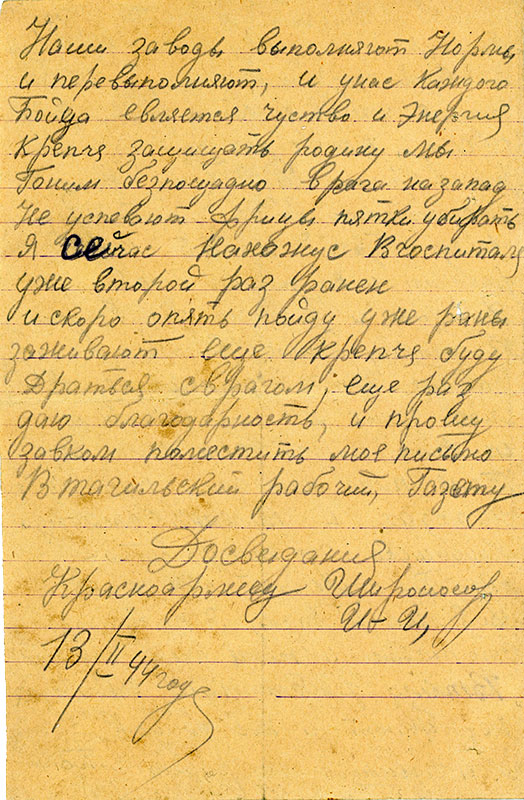 Наши заводы выполняют Нормы
и перевыполняют, и унас Каждого
Бойца евляется чуство и Энергия
крепчя защищать родину мы
Гоним безпощадно врага назапад
Не успевают Фрицы пятки убирать
Я сейчас Нахожус Вгоспитале
уже второй раз ранен
и скоро опять пойду уже раны
заживают еще крепчя буду
Драться сврагом, еще раз
даю благодарность, и прошу
завком поместить мое письмо
В тагильский рабочий, Газету
Досведания
Красноармеец
13/II 44 года